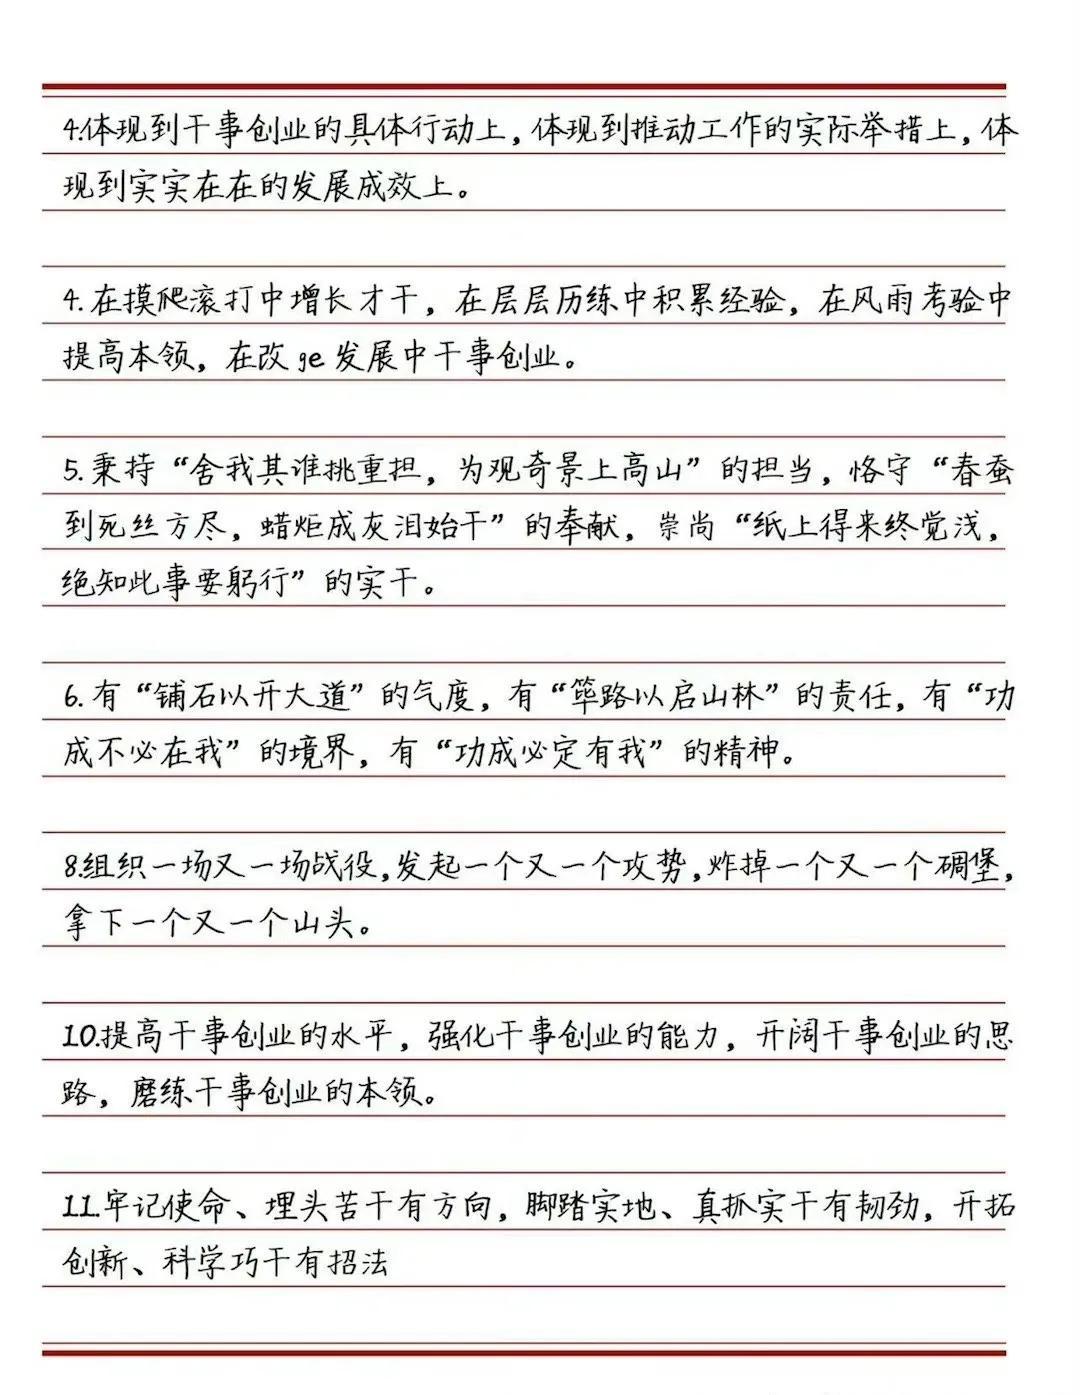 4.体现到干事创业的具体行动上，体现到推动工作的实际举措上，体
现到实实在在的发展成效上。
4.在摸爬滚打中增长才干，在层层历练中积累经验，在风雨考验中
提高本领，在改ge发展中干事创业。
5.秉持“舍我其谁挑重担，为观奇景上高山”的担当，恪守“春蚕
到死丝方尽，蜡炬成灰泪始干”的奉献，崇尚“纸上得来终觉浅，
绝知此事要躬行”的实干。
6.有“铺石以开大道”的气度，有“筚路以启山林”的责任，有“功
成不必在我”的境界，有“功成必定有我”的精神。
8.组织一场又一场战役,发起一个又一个攻势,炸掉一个又一个碉堡，
拿下一个又一个山头。
10.提高干事创业的水平，强化干事创业的能力，开阔干事创业的思
路，磨练干事创业的本领。
11.牢记使命、埋头苦干有方向，脚踏实地、真抓实干有韧劲，开拓
创新、科学巧干有招法